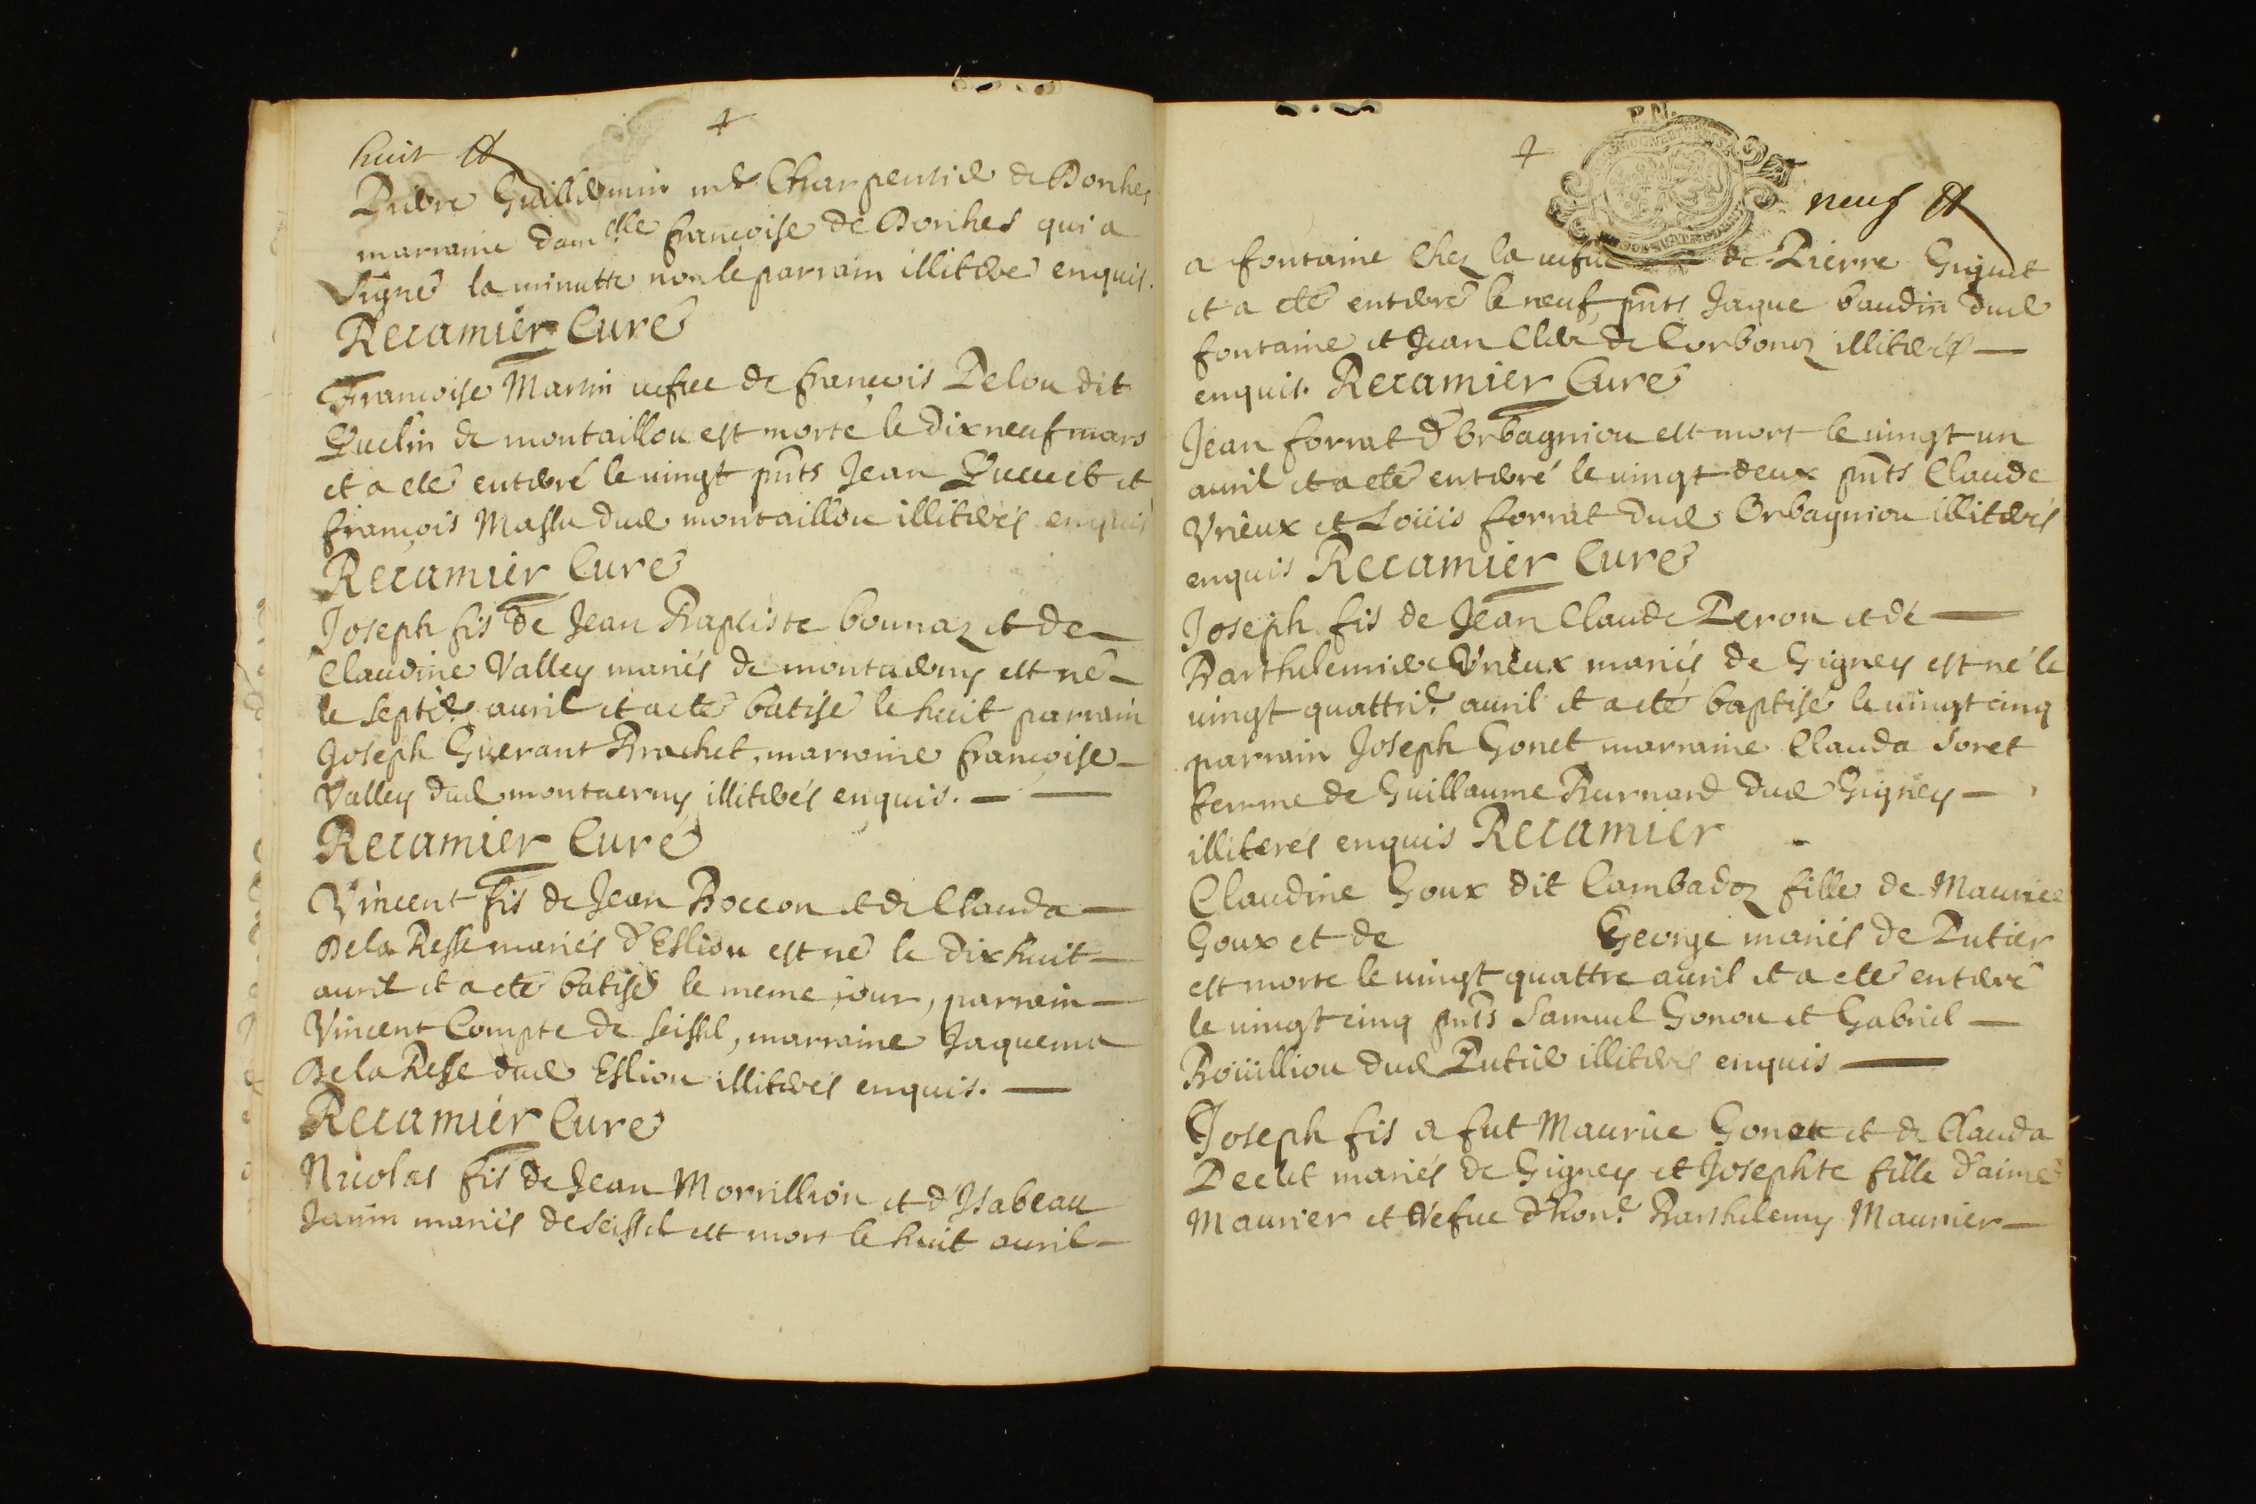 huit
Pierre Guillermin md Charpentier de Dorches
marraine damelle francoise de Dorches qui a
signé la minutte non le parrain illiteré enquis.
Recamier Curé
Francoise Martin vefue de francois Pelou dit
Quelin de montaillou est morte le dix neuf mars
et a eté enteré le vingt pnts Jean et
francois Massu dud montaillou illiterés enquis
Recamier Curé
Joseph fis de Jean Baptiste bonnaz et de
Claudine Valley mariés de est né
le septie. auril et a eté batisé le huit parrain
Joseph Guerant Brachet, marraine francoise
Valley dud illiterés enquis.
Recamier Curé
Vincent fis de Jean Boccon et de Clauda
Dela Resse mariés d'Esliou est né le dix huit
auril et a eté batisé le meme jour, parrain
Vincent Compte de seissel, marraine Jaquema
Dela Resse dud Esliou illiterés enquis.
Recamier Curé
Nicolas fis de Jean Morrillion et d'Isabeau
Janin mariés de seissel est mort le huit auril
neuf
a fontaine chez la uefue de Pierre Guguet
et a eté enteré le neuf pnts Jaque baudin dud
fontaine et Jean Clerc de Corbonoz illiterés
enquis. Recamier Curé
Jean forrat d'Orbagniou est mort le uingt un
auril et a eté enteré le uingt deux pnts Claude
Vrieux et Loüis forrat dud Orbagniou illiterés
enquis Recamier Curé
Joseph fis de Jean Claude Peron et de
Barthelemie Vrieux mariés de Gigney est né le
uingt quattrie. auril et a eté baptisé le uingt cinq
parrain Joseph Gonet marraine Clauda Soret
femme de Guillaume Burnard dud Gigney
illiterés enquis Recamier
Claudine Goux dit Cambadoz fille de Maurice
Goux et de George mariés de Putier
est morte le uingt quattre auril et a eté enteré
le uingt cinq pnts Samuel Gonou et Gabriel
Roüilliou dud Putier illiterés enquis
Joseph fis a fut Maurice Gonet et de Clauda
Declet mariés de Gigney et Josephte fille d'aimé
Maurier et Vefue d'hon. Barthelemy Maunier